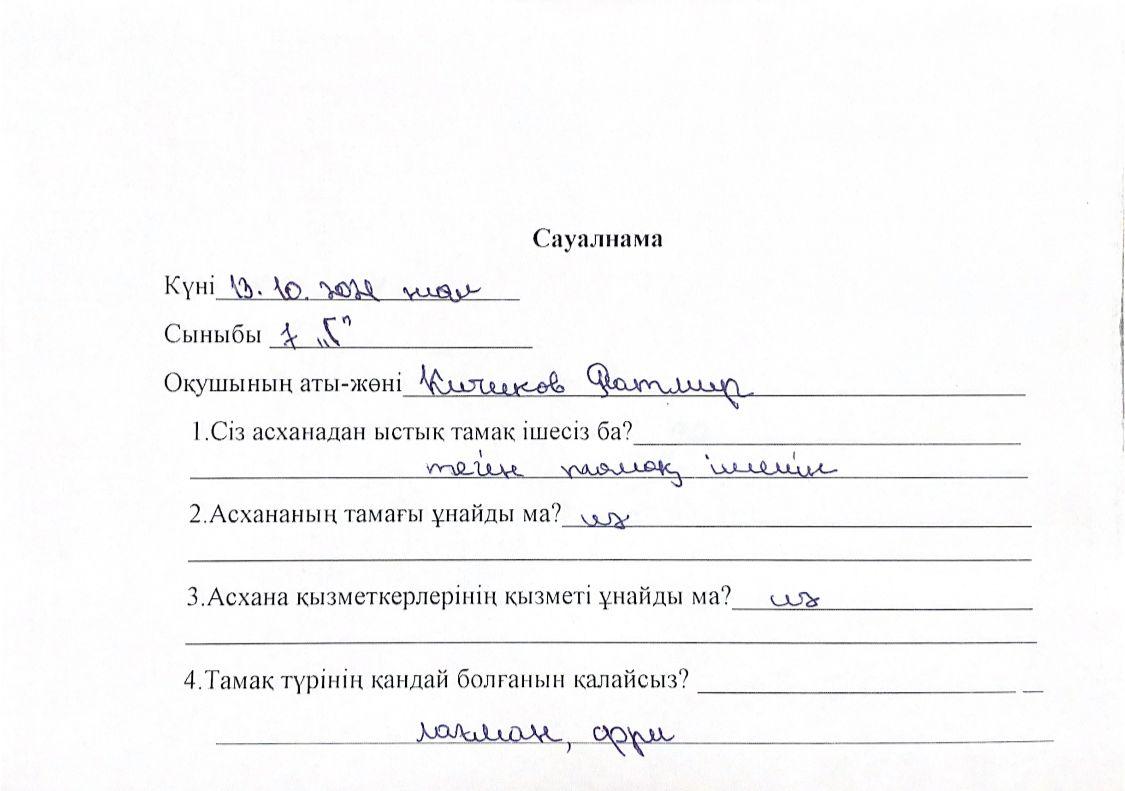 Сауалнама
Күні 13.10.2021 жыл
Сыныбы 7 „Г"
Оқушының аты-жөні Кичиков Ратмир
1.Сіз асханадан ыстық тамақ ішесіз ба?
тегін тамақ ішемін
2.Асхананың тамағы ұнайды ма? иә
3.Асхана қызметкерлерінің қызметі ұнайды ма? иә
4.Тамақ түрінің қандай болғанын қалайсыз?
лағман, фри